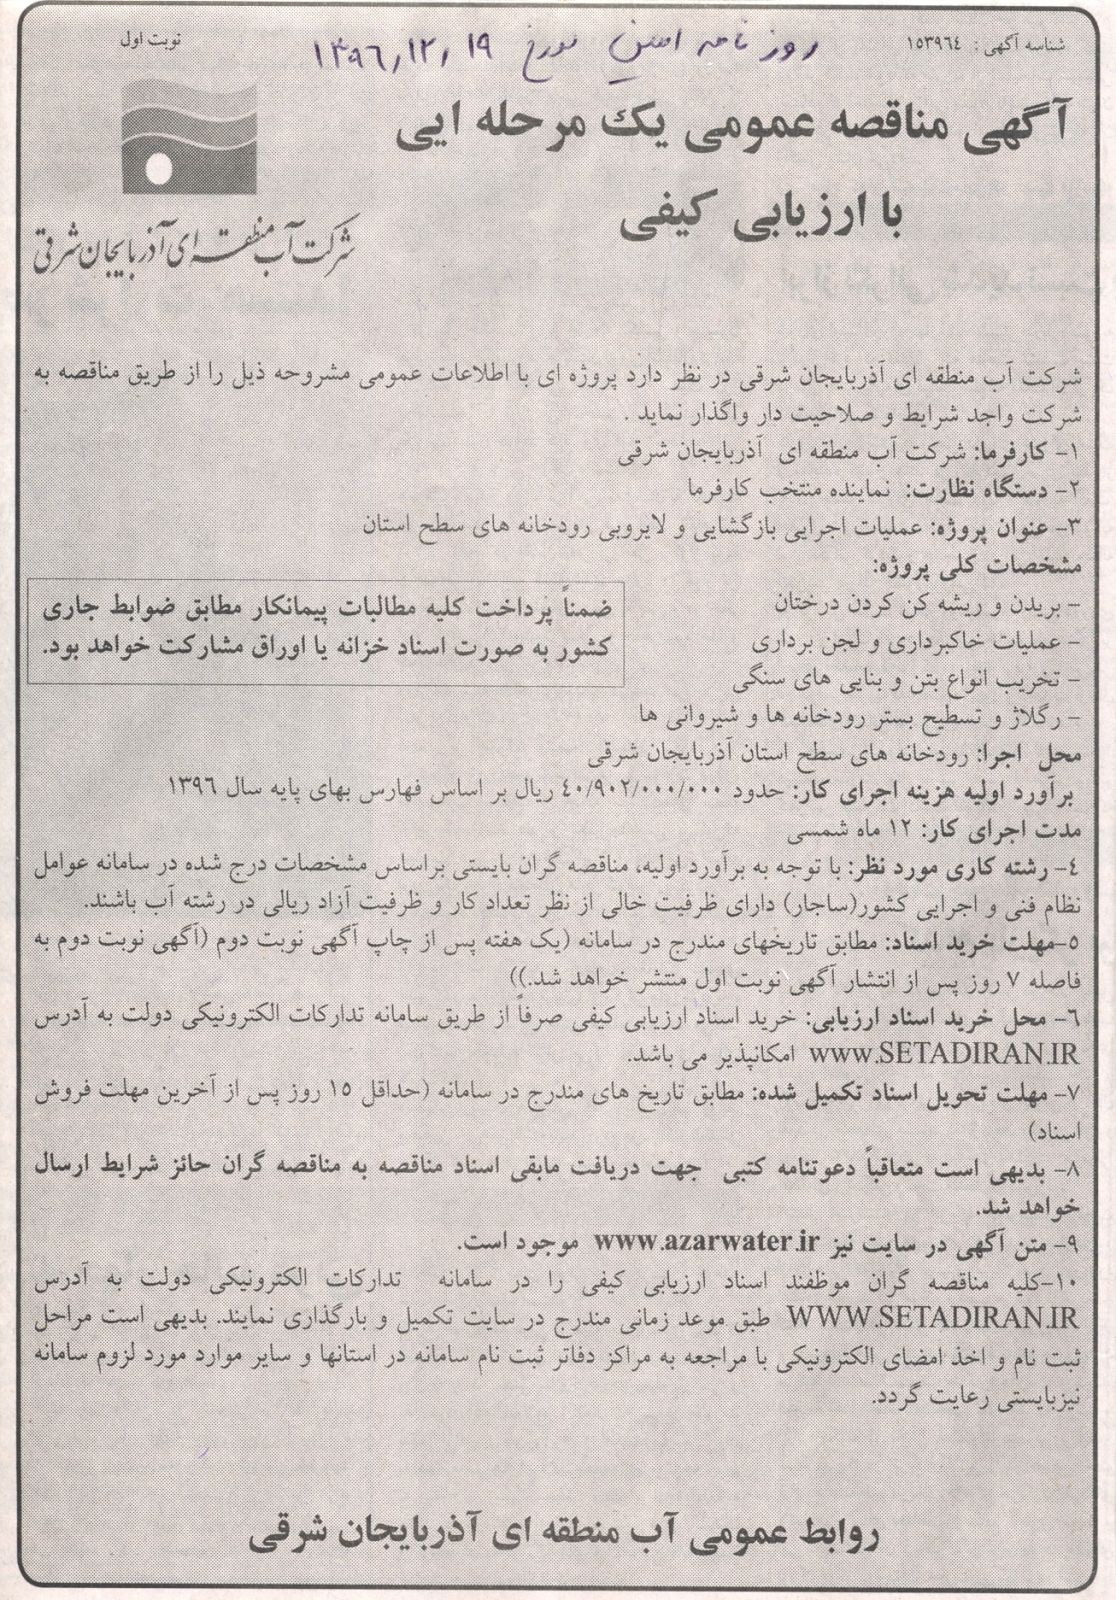 شناسه آگهی: ۱۵۳۹۶٤
روزنامه امین مورخ ۱۳۹۶,۱۲,۱۹
نوبت اول
آگهی مناقصه عمومی یک مرحله ایی
با ارزیابی کیفی
شرکت آب منطقه ای آذربایجان شرقی
شرکت آب منطقه ای آذربایجان شرقی در نظر دارد پروژه ای با اطلاعات عمومی مشروحه ذیل را از طریق مناقصه به
شرکت واجد شرایط و صلاحیت دار واگذار نماید .
۱- کارفرما: شرکت آب منطقه ای آذربایجان شرقی
۲- دستگاه نظارت: نماینده منتخب کارفرما
۳- عنوان پروژه: عملیات اجرایی بازگشایی و لایروبی رودخانه های سطح استان
مشخصات کلی پروژه:
- بریدن و ریشه کن کردن درختان
- عملیات خاکبرداری و لجن برداری
- تخریب انواع بتن و بنایی های سنگی
- رگلاژ و تسطیح بستر رودخانه ها و شیروانی ها
ضمناً پرداخت کلیه مطالبات پیمانکار مطابق ضوابط جاری
کشور به صورت اسناد خزانه یا اوراق مشارکت خواهد بود.
محل اجرا: رودخانه های سطح استان آذربایجان شرقی
برآورد اولیه هزینه اجرای کار: حدود ٤۰/۹۰۲/۰۰۰/۰۰۰ ریال بر اساس فهارس بهای پایه سال ۱۳۹٦
مدت اجرای کار: ۱۲ ماه شمسی
٤- رشته کاری مورد نظر: با توجه به برآورد اولیه، مناقصه گران بایستی براساس مشخصات درج شده در سامانه عوامل
نظام فنی و اجرایی کشور(ساجار) دارای ظرفیت خالی از نظر تعداد کار و ظرفیت آزاد ریالی در رشته آب باشند.
۵-مهلت خرید اسناد: مطابق تاریخهای مندرج در سامانه (یک هفته پس از چاپ آگهی نوبت دوم (آگهی نوبت دوم به
فاصله ۷ روز پس از انتشار آگهی نوبت اول منتشر خواهد شد.))
٦- محل خرید اسناد ارزیابی: خرید اسناد ارزیابی کیفی صرفاً از طریق سامانه تدارکات الکترونیکی دولت به آدرس
www.SETADIRAN.IR امکانپذیر می باشد.
۷- مهلت تحویل اسناد تکمیل شده: مطابق تاریخ های مندرج در سامانه (حداقل ۱۵ روز پس از آخرین مهلت فروش
اسناد)
۸- بدیهی است متعاقباً دعوتنامه کتبی جهت دریافت مابقی اسناد مناقصه به مناقصه گران حائز شرایط ارسال
خواهد شد.
۹- متن آگهی در سایت نیز www.azarwater.ir موجود است.
۱۰-کلیه مناقصه گران موظفند اسناد ارزیابی کیفی را در سامانه تدارکات الکترونیکی دولت به آدرس
WWW.SETADIRAN.IR طبق موعد زمانی مندرج در سایت تکمیل و بارگذاری نمایند. بدیهی است مراحل
ثبت نام و اخذ امضای الکترونیکی با مراجعه به مراکز دفاتر ثبت نام سامانه در استانها و سایر موارد مورد لزوم سامانه
نیزبایستی رعایت گردد.
روابط عمومی آب منطقه ای آذربایجان شرقی